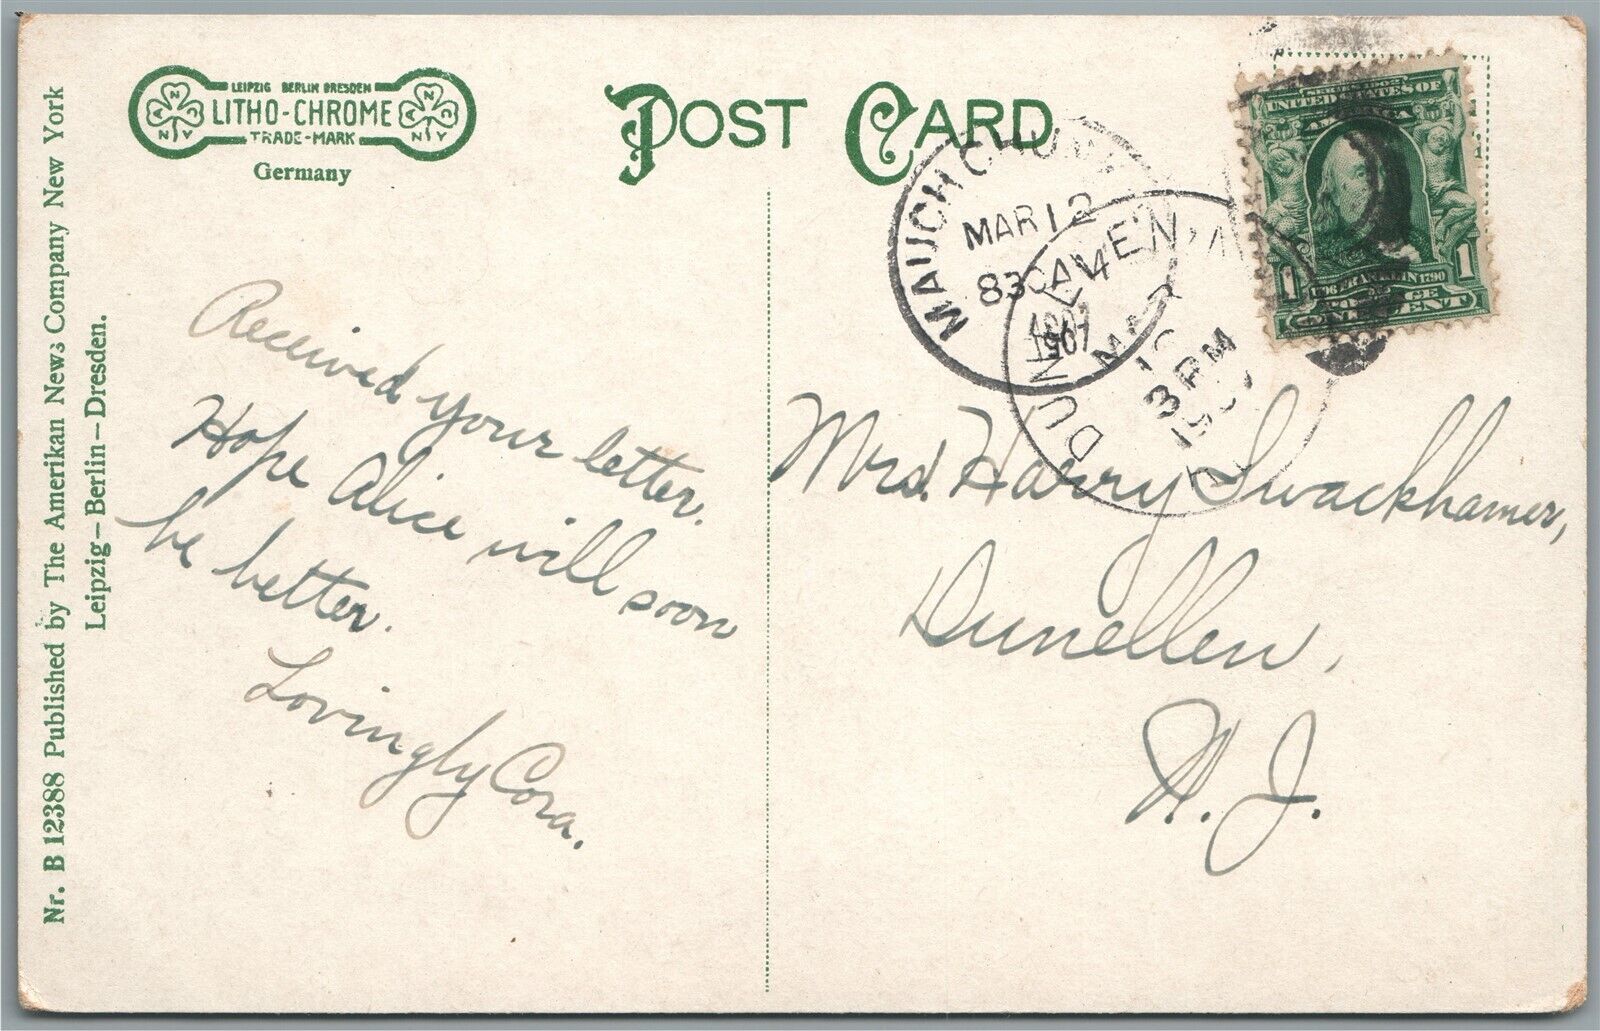 LEIPZIG BERLIN DRESDEN
LITHO-CHROME
TRADE-MARK
N Y
Germany
POST CARD
Nr. B 12388 Published by The Amerikan News Company New York
Leipzig—Berlin—Dresden.
MAUCH CHUNK
MAR 12
830A
1907
DUNELLEN
MAR
3 PM
SERIES 1902
UNITED STATES OF
AMERICA
FRANKLIN 1790
1 1
ONE CENT
Received your letter.
Hope Alice will soon
be better.
Lovingly Cora.
Mrs. Harry Swackhamer,
Dunellen,
N. J.